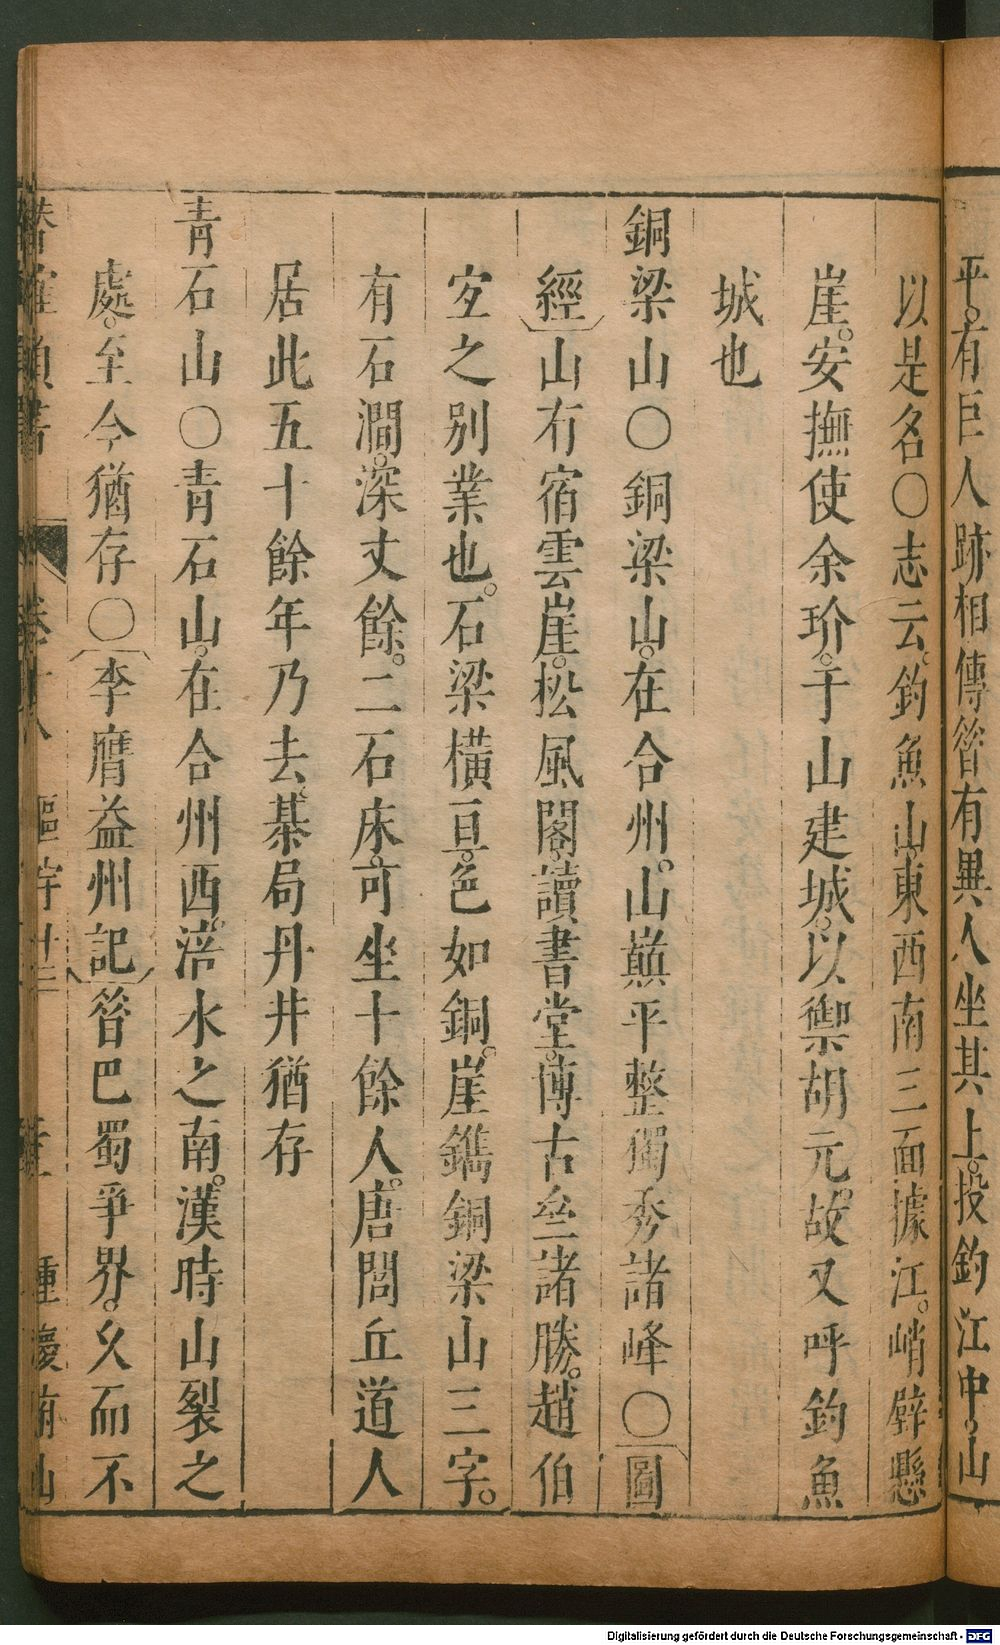 平有巨人跡相傳昝有異人坐其上投釣江中山
以是名○志云釣魚山東西南三面據江峭壁懸
崖安撫使余玠于山建城以禦胡元故又呼釣魚
城也
銅梁山○銅梁山在合州山巔平整獨秀諸峰○圖
經山有宿雲崖松風閣讀書堂博古壘諸勝趙伯
宝之别業也石梁橫亘色如銅崖鐫銅梁山三字
有石澗深丈餘二石床可坐十餘人唐閭丘道人
居此五十餘年乃去棊局丹井猶存
青石山○青石山在合州西涪水之南漢時山裂之
處至今猶存○李膺益州記昝巴蜀爭界久而不
卷十八 區宇廿三 重慶府山
Digitalisierung gefördert durch die Deutsche Forschungsgemeinschaft - DFG